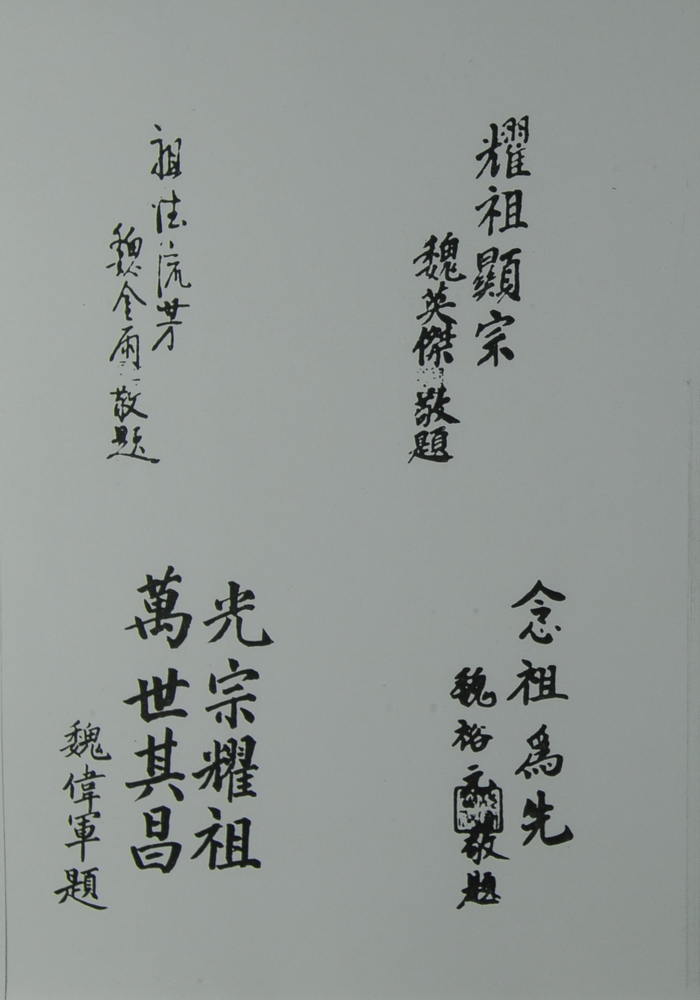 耀祖顯宗
魏英傑敬題
祖德流芳
魏金爾敬題
念祖為先
魏裕元敬題
光宗耀祖
萬世其昌
魏偉軍題